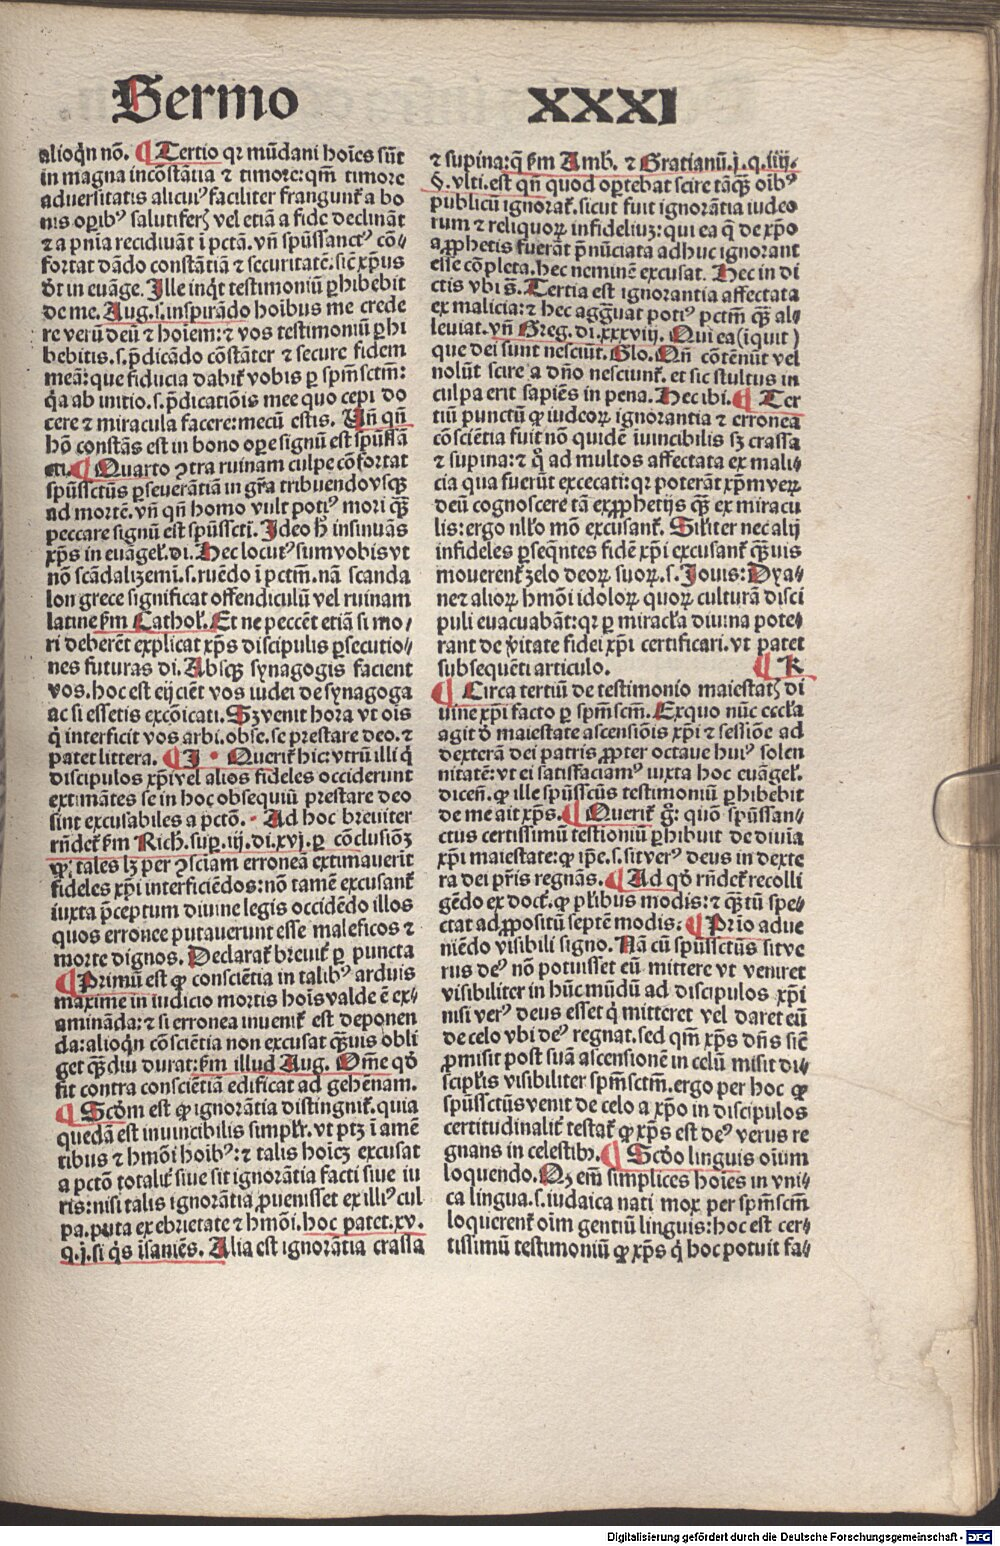 Sermo XXXI
alioq̄n nō. ¶ Tertio qꝛ mūdani hoīes sūt
in magna incōstātia ⁊ timore: qm̄ timore
aduersitatis alicuiꝰ faciliter frangunt᷑ a bo
nis oꝑibꝰ salutiferꝫ vel etiā a fide declināt
⁊ a pnīa recidiuāt ī pctā. vn̄ spūssanctꝰ cō⸗
fortat dādo constātiā ⁊ securitatē. sic̄ xp̄us
dt̄ in euāge. Ille inq̄t testimoniū ꝑhibebit
de me. Aug. s. inspirādo hoībus me crede
re verū deū ⁊ hoīem: ⁊ vos testimoniū ꝑhi
bebitis. s. p̄dicādo cōstāter ⁊ secure fidem
meā: que fiducia dabit᷑ vobis ꝑ spm̄sctm̄:
q̄a ab initio. s. p̄dicatiōis mee quo cepi do
cere ⁊ miracula facere: mecū estis. Vn̄ qn̄
hō constās est in bono oꝑe signū est spūssā
cti. ¶ Quarto ꝯtra ruinam culpe cōfortat
spūssctūs ꝑseuerātiā in gr̄a tribuendo vsqꝫ
ad mortē. vn̄ qn̄ homo vult potiꝰ mori qꝫ̄
peccare signū est spūsscti. Ideo h̄ insinuās
xp̄s in euāgel̄. di. Hec locutꝰ sum vobis vt
nō scādalizemī. s. ruēdo ī pctm̄. nā scanda
lon grece significat offendiculū vel ruinam
latine ẜm Cathol̄. Et ne peccēt etiā si mo⸗
ri deberēt explicat xp̄s discipulis ꝑsecutio⸗
nes futuras di. Absqꝫ synagogis facient
vos. hoc est eijciēt vos iudei de synagoga
ac si essetis excōicati. Sꝫ venit hora vt oīs
q̇ interficit vos arbi. obse. se prestare deo. ⁊
patet littera. ¶ I • Querit᷑ hic: vtrū illi q̇
discipulos xp̄i vel alios fideles occiderunt
extimātes se in hoc obsequiū prestare deo
sint excusabiles a pctō. • Ad hoc breuiter
rn̄det᷑ ẜm Rich. suꝑ. iij. di. xvj. ꝑ cōclusiōꝫ
ꝙ tales lꝫ per ꝯsciam erroneā extimauerīt
fideles xp̄i interficiēdos: nō tamē excusant᷑
iuxta p̄ceptum diuine legis occidēdo illos
quos erronee putauerunt esse maleficos ⁊
morte dignos. Declarat᷑ breuit᷑ ꝑ puncta
¶ Primū est ꝙ consciētia in talibꝰ arduis
maxime in iudicio mortis hoīs valde ē ex⸗
amināda: ⁊ si erronea inuenit᷑ est deponen
da: alioq̄n cōsciētia non excusat qꝫ̄uis obli
get qꝫ̄diu durat: ẜm illud Aug. Om̄e qd̄
fit contra consciētiā edificat ad gehēnam.
¶ Scd̄m est ꝙ ignorātia distinguit᷑. quia
quedā est inuincibilis simpl̄r. vt ptꝫ ī amē
tibus ⁊ hmōi hoībꝰ: ⁊ talis hoīeꝫ excusat
a pctō totalit᷑ siue sit ignorātia facti siue iu
ris: nisi talis ignorātia ꝓuenisset ex illiꝰ cul
pa. puta ex ebrietate ⁊ hmōi. hoc patet. xv.
q. j. si q̇s īsaniēs. Alia est ignorātia crassa
⁊ supina: q̄ ẜm Amb. ⁊ Gratianū. j. q. iiij.
§. vlti. est qn̄ quod oꝑtebat scire tāqꝫ oībꝰ
publicū ignorat᷑. sicut fuit ignorātia iudeo
rum ⁊ reliquoꝝ infideliuꝫ: qui ea q̄ de xp̄o
a ꝓphetis fuerāt p̄nūciata adhuc ignorant
esse cōpleta. hec neminē excusat. Hec in di
ctis vbi s̄. Tertia est ignorantia affectata
ex malicia: ⁊ hec aggrauat potiꝰ pctm̄ qꝫ̄ al⸗
leuiat. vn̄ Greg. di. xxxviij. Qui ea (iquit)
que dei sunt nesciūt. Glo. Qn̄ cōtēnūt vel
nolūt scire a dn̄o nesciunt᷑. et sic stultus in
culpa erit sapiēs in pena. Hec ibi. ¶ Ter
tiū punctū ꝙ iudeoꝝ ignorantia ⁊ erronea
cōsciētia fuit nō quidē iuincibilis sꝫ crassa
⁊ supina: ⁊ q̊ ad multos affectata ex mali⸗
cia qua fuerūt excecati: qꝛ poterāt xp̄m veꝝ
deū cognoscere tā ex ꝓphetijs qꝫ̄ ex miracu
lis: ergo nll̄o mō excusant᷑. Sil̄iter nec alij
infideles ꝑseq̄ntes fidē xp̄i excusant᷑ qꝫ̄uis
mouerent᷑ zelo deoꝝ suoꝝ. s. Iouis: Dya⸗
ne ⁊ alioꝝ hmōi idoloꝝ quoꝝ culturā disci
puli euacuabāt: qꝛ ꝑ miracl̄a diuina pote⸗
rant de v̄itate fidei xp̄i certificari. vt patet
subsequēti articulo. ¶ K
¶ Circa tertiū de testimonio maiestatꝫ di
uine xp̄i facto ꝑ spm̄scm̄. Exquo nūc eccl̄a
agit d̄ maiestate ascensiōis xp̄i ⁊ sessiōe ad
dexterā dei patris ꝓpter octaue huiꝰ solen
nitatē: vt ei satisfaciamꝰ iuxta hoc euāgel̄.
dicen̄. ꝙ ille spūsscūs testimoniū ꝑhibebit
de me ait xp̄s. ¶ Querit᷑ g̊: quō spūssan⸗
ctus certissimū testioniū ꝑhibuit de diuīa
xp̄i maiestate: ꝙ ip̄e. s. sit verꝰ deus in dexte
ra dei pr̄is regnās. ¶ Ad qd̄ rn̄det᷑ recolli
gēdo ex doct. ꝙ pl̄ibus modis: ⁊ qꝫ̄tū spe⸗
ctat ad ꝓpositū septē modis: ¶ Prīo adue
niēdo visibili signo. Nā cū spūssctūs sit ve
rus deꝰ nō potuisset eū mittere vt veniret
visibiliter in hūc mūdū ad discipulos xp̄i
nisi verꝰ deus esset q̇ mitteret vel daret eū
de celo vbi deꝰ regnat. sed qm̄ xp̄s dn̄s sic̄
ꝓmisit post suā ascensionē in celū misit di⸗
scipl̄is visibiliter spm̄sctm̄. ergo per hoc ꝙ
spūssctūs venit de celo a xp̄o in discipulos
certitudinalit᷑ testat᷑ ꝙ xp̄s est deꝰ verus re
gnans in celestibꝫ. ¶ Scd̄o linguis oīum
loquendo. Qꝫ em̄ simplices hoīes in vni⸗
ca lingua. s. iudaica nati mox per spm̄scm̄
loquerent᷑ oīm gentiū linguis: hoc est cer⸗
tissimū testimoniū ꝙ xp̄s q̇ hoc potuit fa⸗
Digitalisierung gefördert durch die Deutsche Forschungsgemeinschaft - DFG